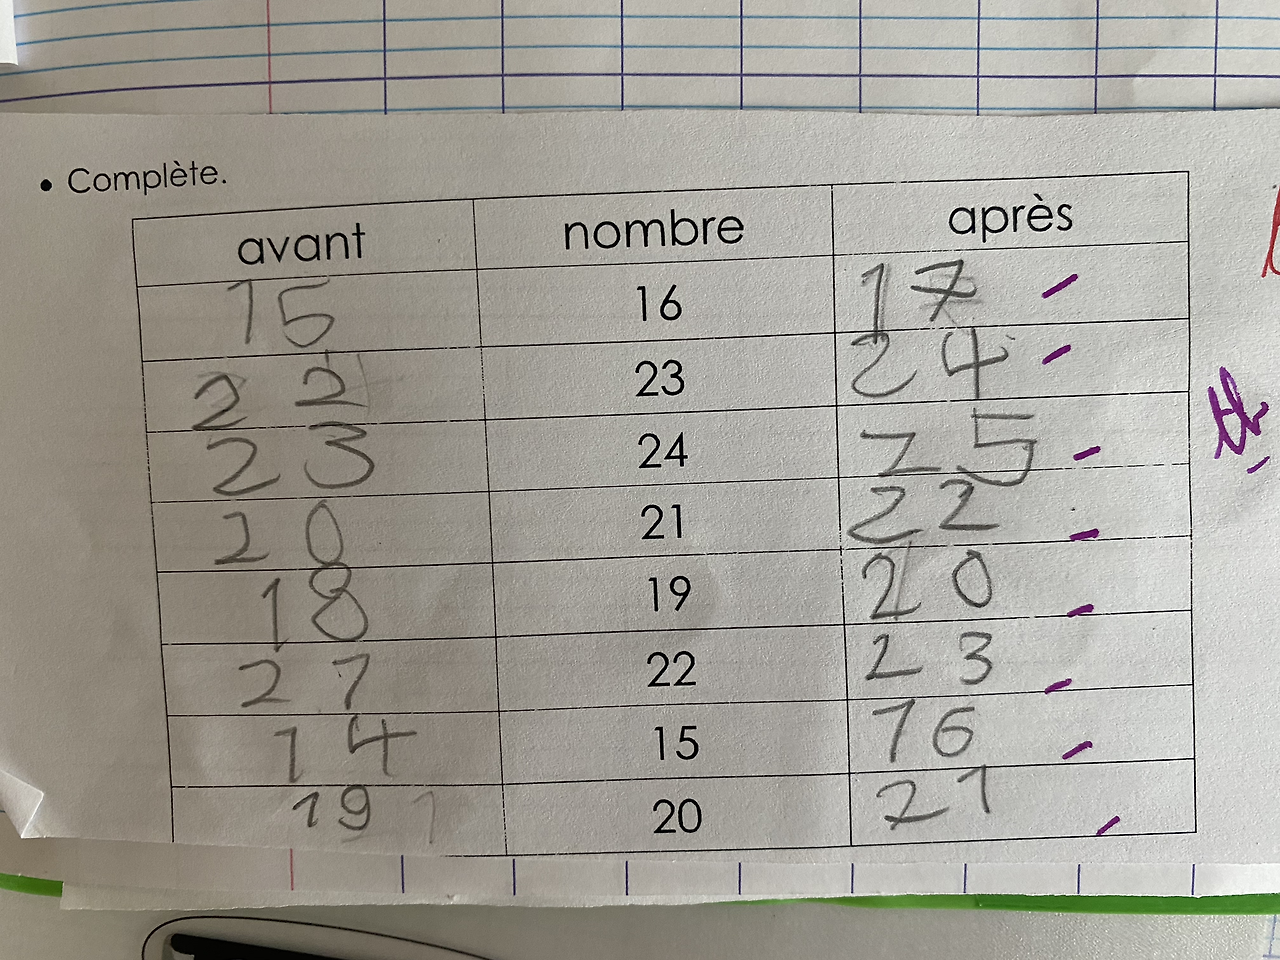 • Complète.
avant nombre après
15 16 17
22 23 24
23 24 25
20 21 22
18 19 20
21 22 23
14 15 16
19 20 21
tb